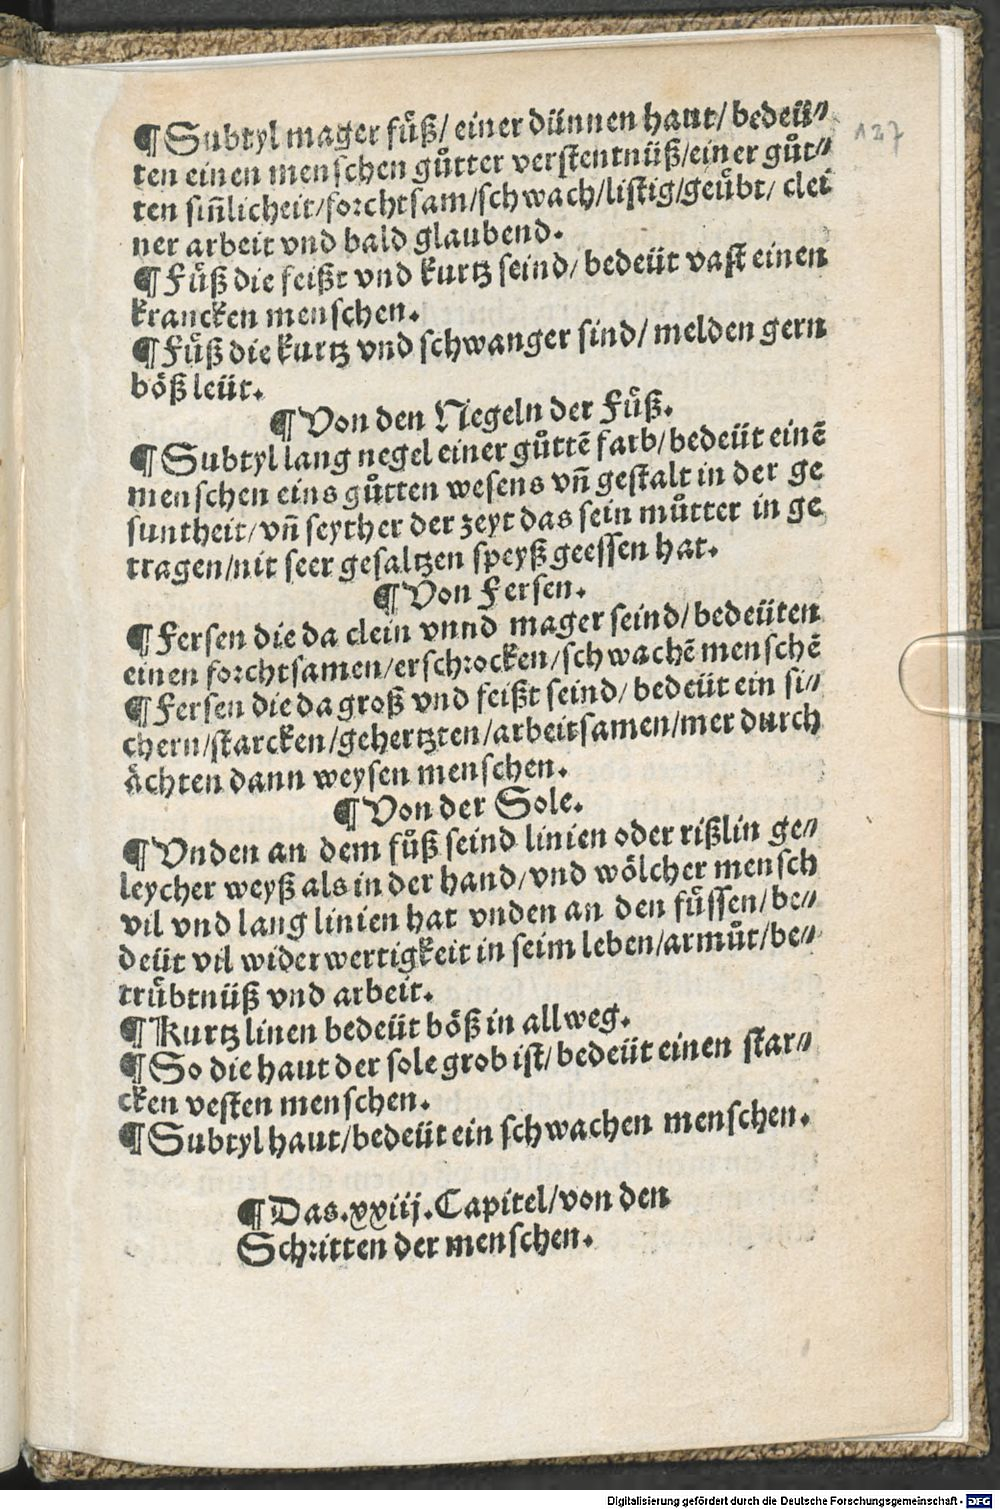 ¶Subtyl mager fuͤß/ einer dünnen haut/ bedeü⸗
ten einen menschen guͦtter verstentnüß/einer guͦt⸗
ten siñlicheit/forchtsam/schwach/listig/geuͤbt/ clei
ner arbeit vnd bald glaubend.
¶Fuͤß die feißt vnd kurtz seind/ bedeüt vast einen
krancken menschen.
¶Fuͤß die kurtz vnd schwanger sind/ melden gern
boͤß leüt.
¶Von den Negeln der Fuͤß.
¶Subtyl lang negel einer guͦttẽ farb/ bedeüt einẽ
menschen eins guͦtten wesens vñ gestalt in der ge
suntheit/ vñ seyther der zeyt das sein muͦtter in ge
tragen/nit seer gesaltzen speyß geessen hat.
¶Von Fersen.
¶Fersen die da clein vnnd mager seind/ bedeüten
einen forchtsamen/erschrocken/schwachẽ menschẽ
¶Fersen die da groß vnd feißt seind/ bedeüt ein si⸗
chern/starcken/gehertzten/arbeitsamen/mer durch
aͤchten dann weysen menschen.
¶Von der Sole.
¶Vnden an dem fuͦß seind linien oder rißlin ge⸗
leycher weyß als in der hand/vnd woͤlcher mensch
vil vnd lang linien hat vnden an den fuͤssen/ be⸗
deüt vil widerwertigkeit in seim leben/armuͦt/be⸗
truͤbtnüß vnd arbeit.
¶Kurtz linen bedeüt boͤß in allweg.
¶So die haut der sole grob ist/ bedeüt einen star⸗
cken vesten menschen.
¶Subtyl haut/bedeüt ein schwachen menschen.
¶Das.xxiij.Capitel/von den
Schritten der menschen.
127
Digitalisierung gefördert durch die Deutsche Forschungsgemeinschaft - DFG